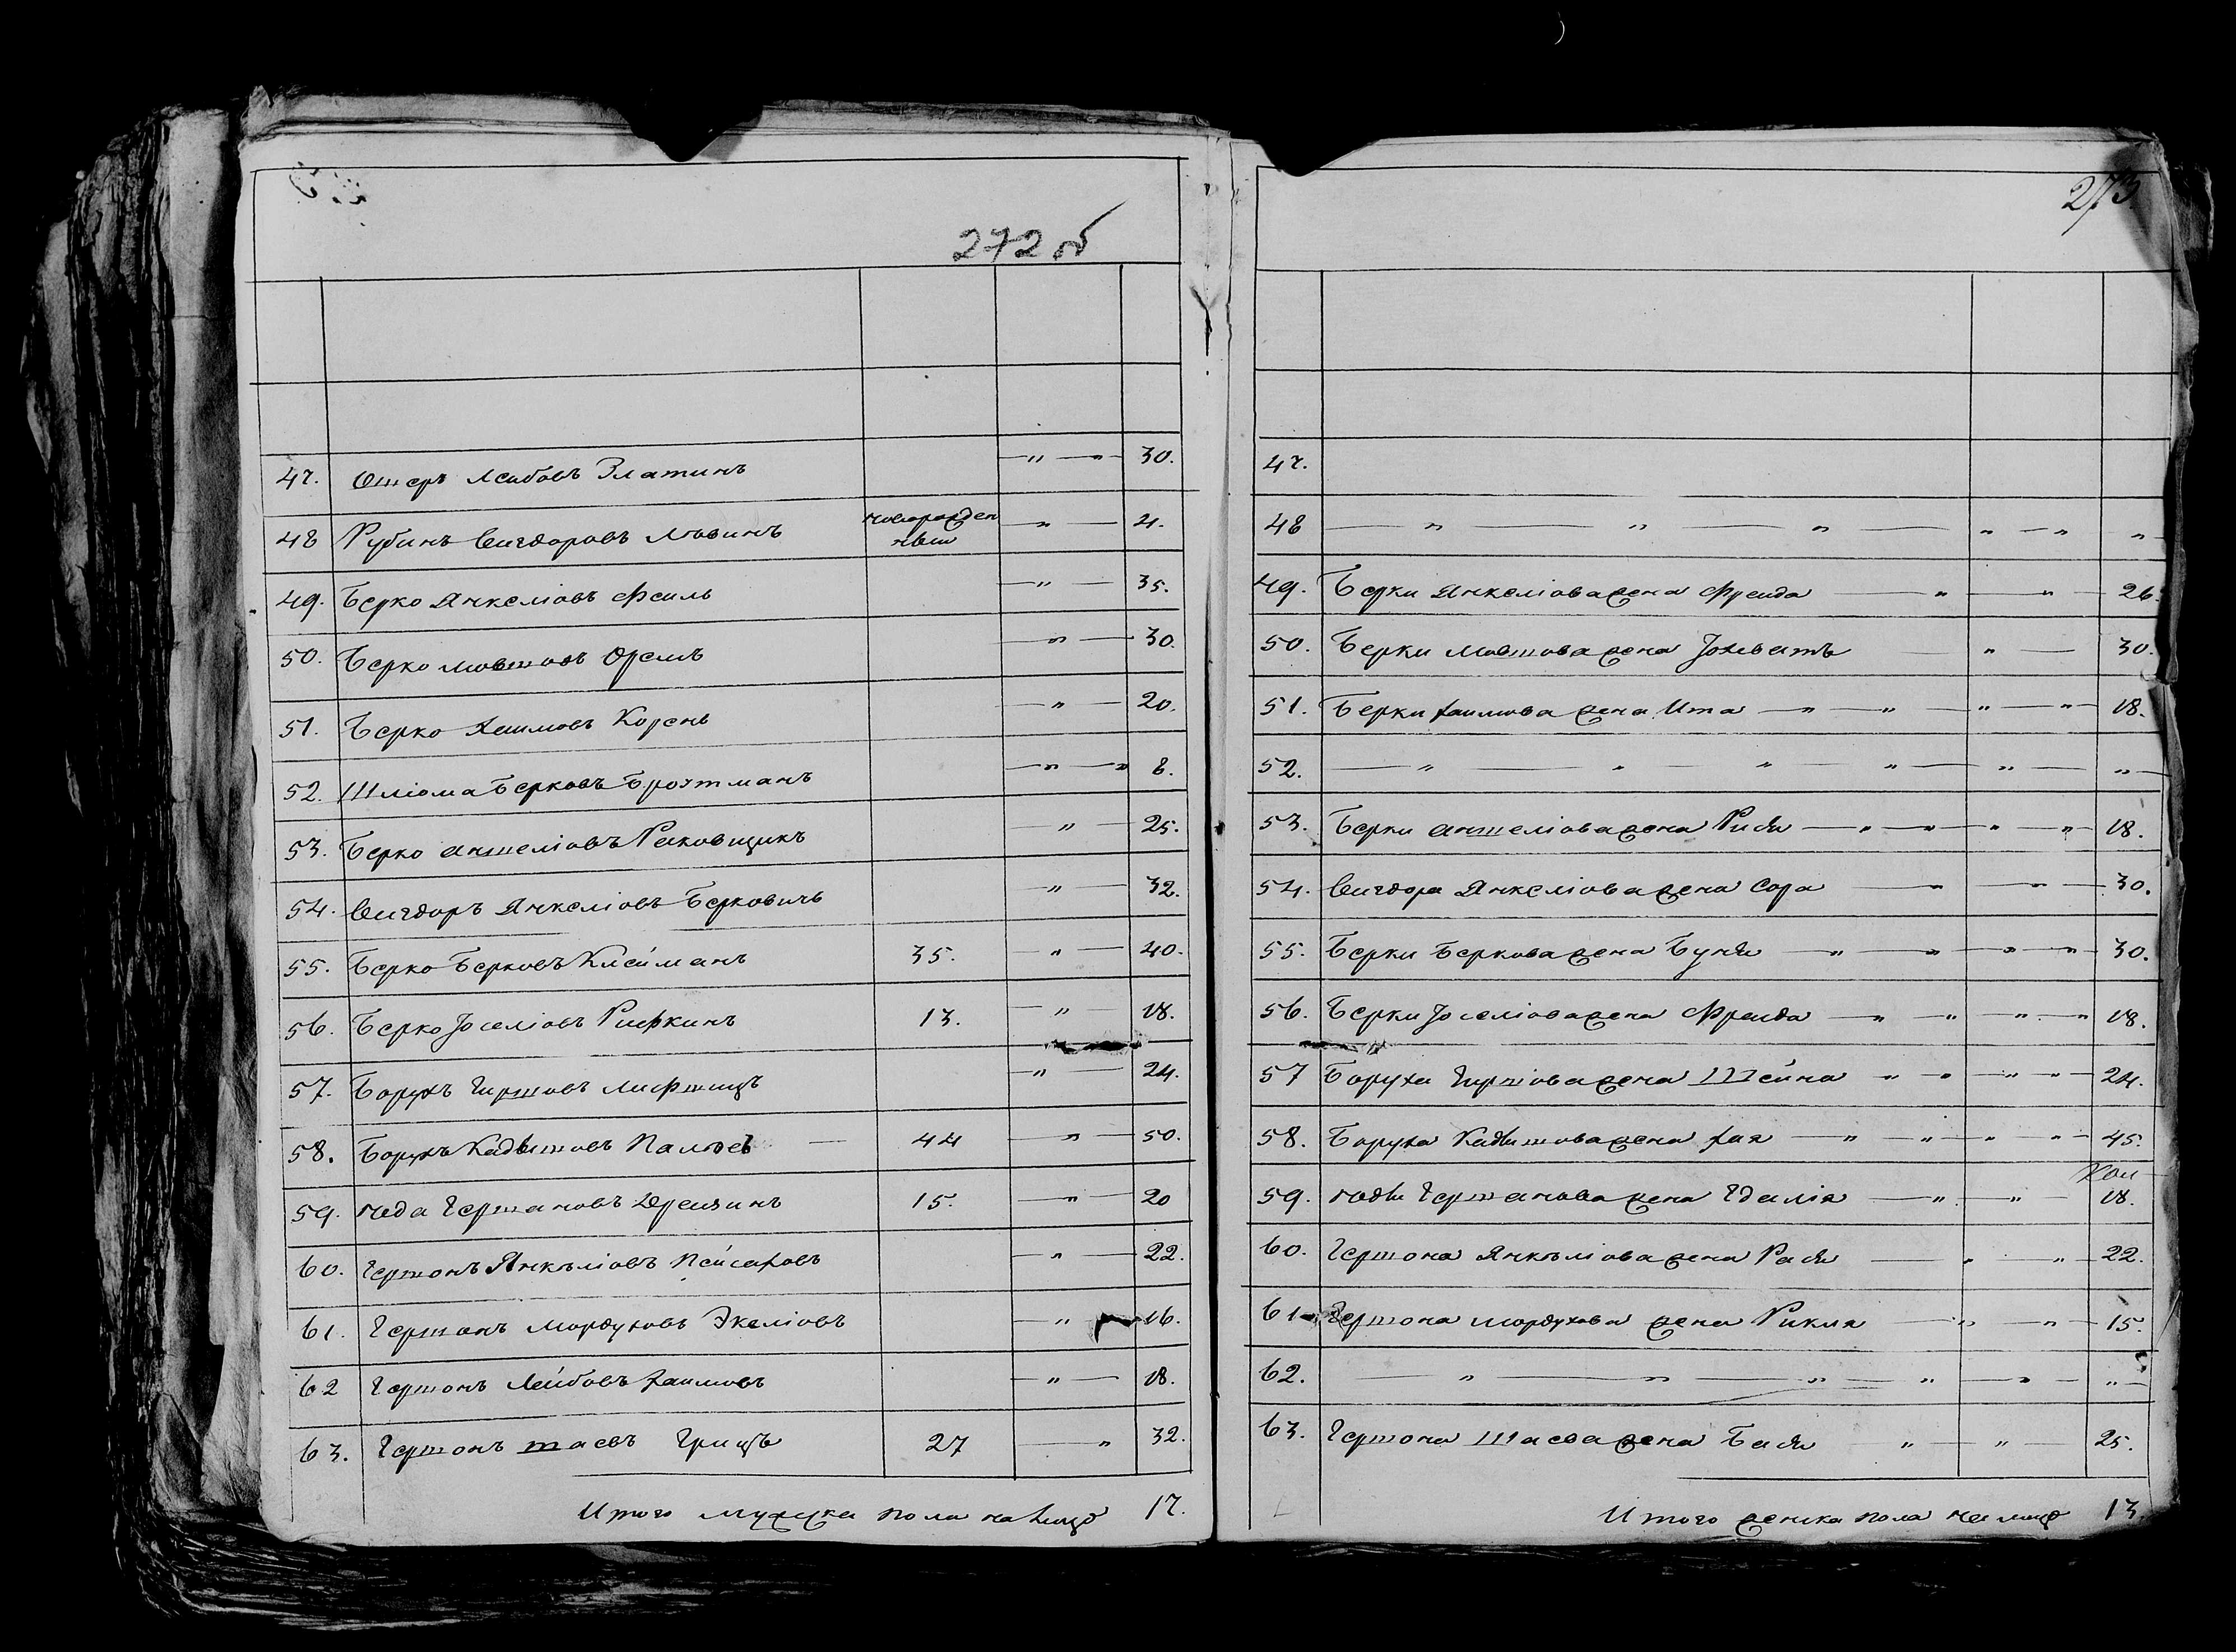 272 об
47. Ошеръ Лейбовъ Златинъ — " — " — 30.
48 Рубинъ Вигдоровъ Левинъ новорожден — " — 4.
ный
49. Берко Янкеліовъ Фейль — " — 35.
50. Берко Мовшовъ Орелъ — " — 30.
51. Берко Хаимовъ Корень — " — 20.
52. Шліома Берковъ Бройтманъ — " — " 8.
53. Берко Аншеліовъ Раковщикъ — " — 25.
54. Вигдоръ Янкеліовъ Берковичъ — " — 32.
55. Берко Берковъ Клейманъ 35. — " — 40.
56. Берко Іоселіовъ Рифкинъ 13. — " — 18.
57. Борухъ Гиршовъ Лифшицъ — " — 24.
58. Борухъ Кадышовъ — 44 — " — 50.
59. Геда Гершановъ Дрейзинъ 15. — " — 20
60. Гершонъ Янкъліовъ Пейсаховъ — " — 22.
61. Гершонъ Мордуховъ Экеліовъ — " 16.
62 Гершонъ Лейбовъ Хаимовъ — " — 18.
63. Гершонъ Шаевъ Грицъ 27 — " 32.
Итого мужска пола на лицо 17.
273.
47.
48 — " — " — " — " — " "
49. Берки Янкеліова жена Фрейда — " — " — 26.
50. Берки Мовшова жена Іохветъ — " — 30.
51. Берки Хаимова жена Ита — " — " — " — " — 18.
52. — " — " — " — " — " — " —
53. Берки Аншеліова жена Рися — " — " — " — " — 18.
54. Вигдора Янкеліова жена Сора — " — " — 30.
55. Берки Беркова жена Буня — " — " — " — " — 30.
56. Берки Іоселіова жена Фрейда — " — " — " — " 18.
57 Боруха Гиршова жена Шейна " — " — " — " — 24.
58. Боруха Кадышова жена Хая — " — " — " — " — 45.
59. Геды Гершанова жена Гдалія — " — " — 18.
60. Гершона Янкъліова жена Рася — " — " — 22.
61 Гершона Мордухова жена Рикля — " — " — 15.
62. — " — " — " — " — " — " —
63. Гершона Шаева жена Бася " — " — 25.
Итого женска пола на лицо 13.